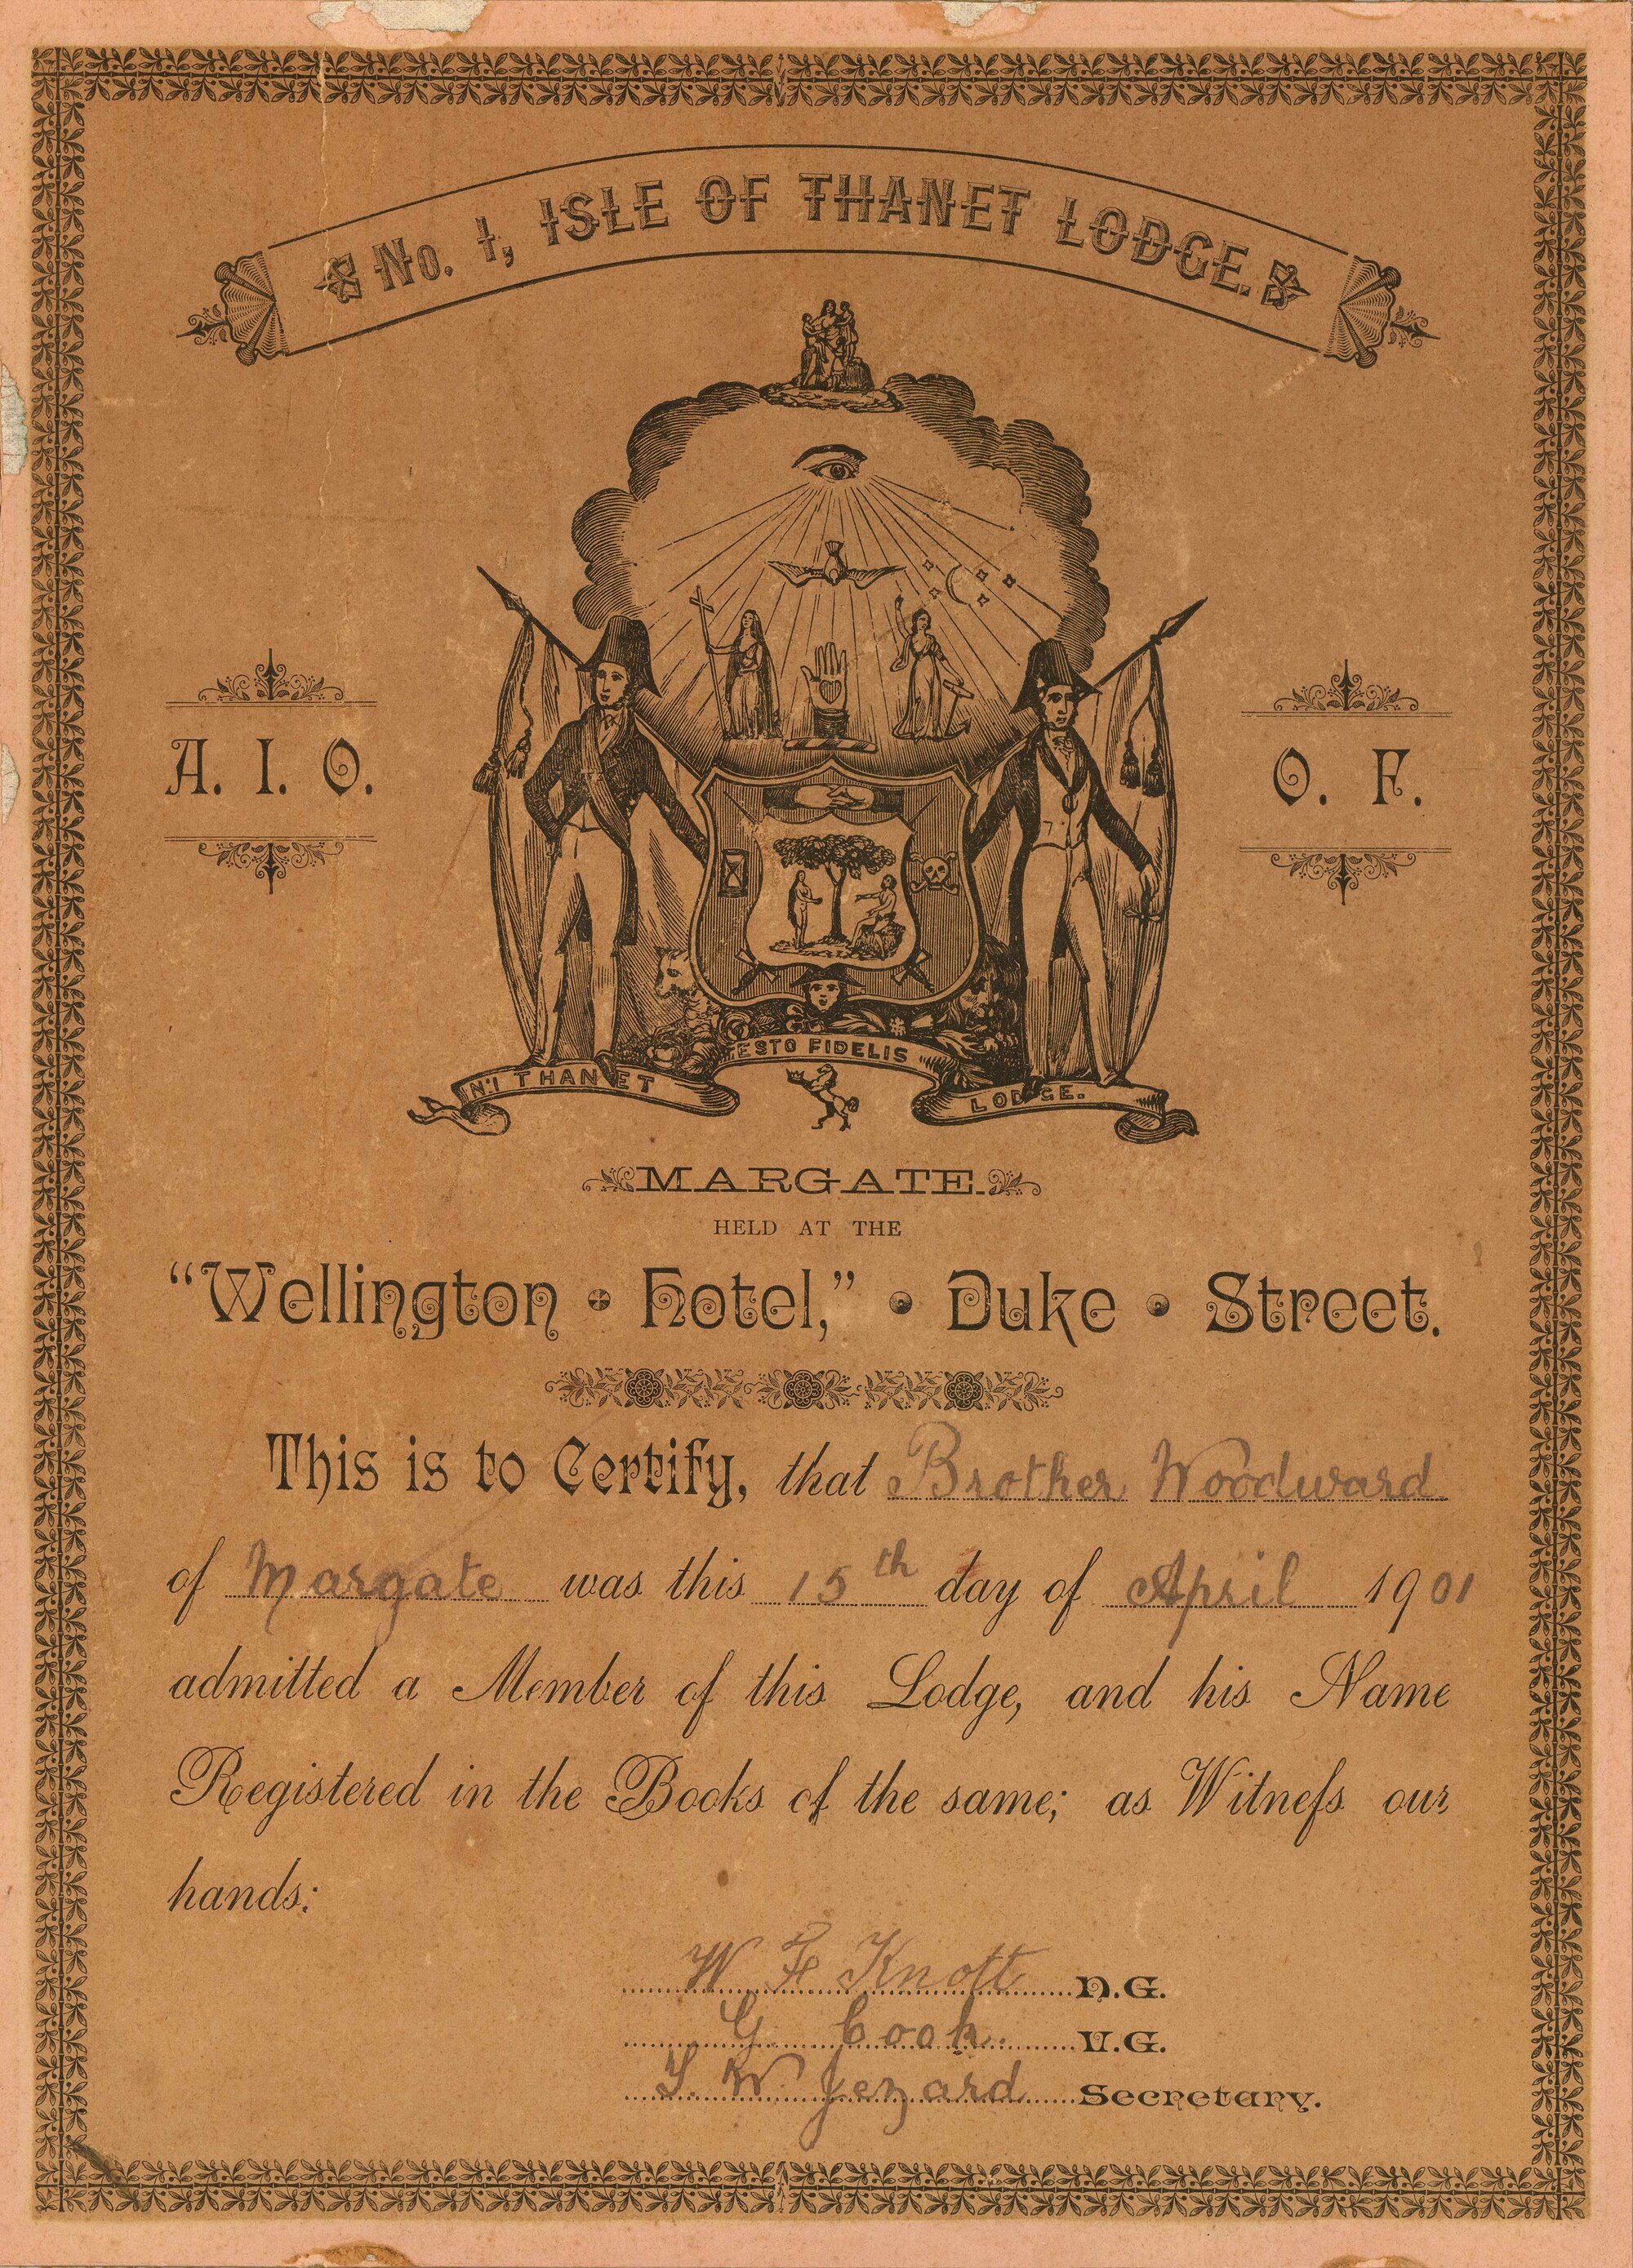 No. 1, ISLE OF THANET LODGE.
A. I. O.
O. F.
ESTO FIDELIS
No 1 THANET
LODGE.
MARGATE.
HELD AT THE
"Wellington • Hotel," • Duke • Street.
This is to Certify, that Brother Woodward
of Margate was this 15th day of April 1901
admitted a Member of this Lodge, and his Name
Registered in the Books of the same; as Witneſs our
hands:
W F Knott N.G.
G. Cook. V.G.
W Jezard Secretary.